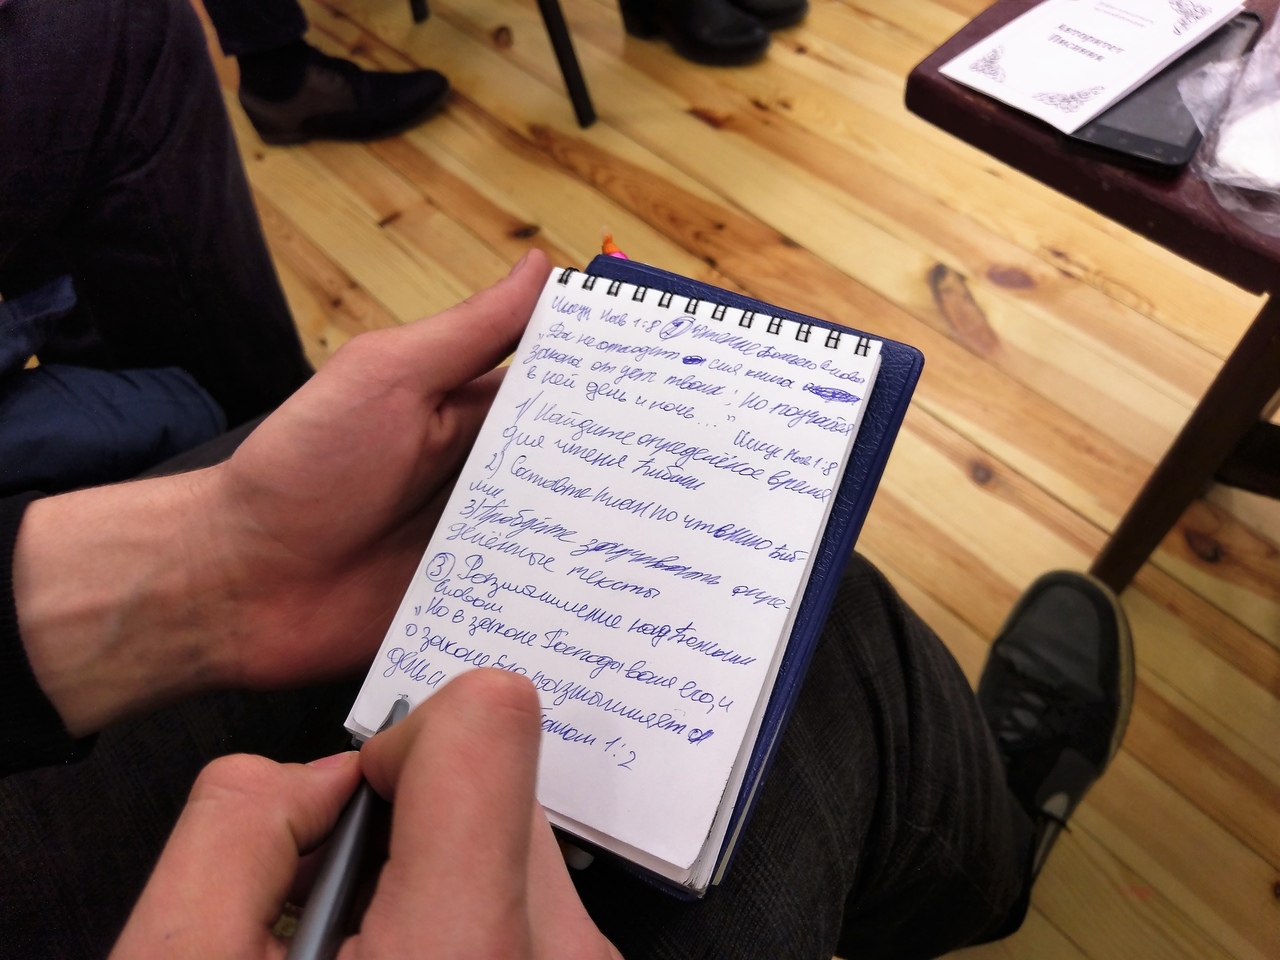 Авторитет
Писания
Иисус Нав 1:8 ② Чтение Божьего Слова
"Да не отходит сия книга
закона от уст твоих; но поучайся
в ней день и ночь..."
Иисус Нав 1:8
1) Найдите определённое время
для чтения Библии
2) Составьте план по чтению Биб-
лии
3) Пробуйте заучивать опре-
делённые тексты
③ Размышление над Божьим
Словом
"Но в законе Господа воля его, и
о законе Его размышляет
день и
1:2